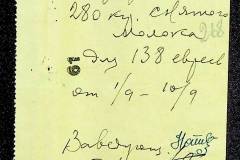 280 кг. снятого
молока
218
для 138 евреев
от 1/9 – 10/9
61
Заведующ.